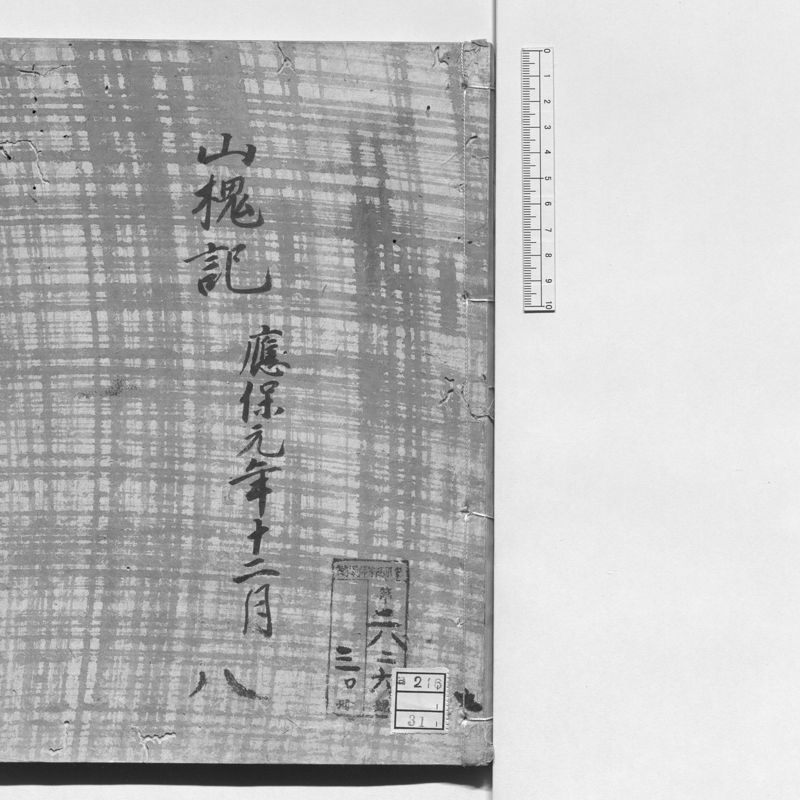 山槐記
應保元年十二月
八
第二八二六號
三〇冊
216
31
0 1 2 3 4 5 6 7 8 9 10